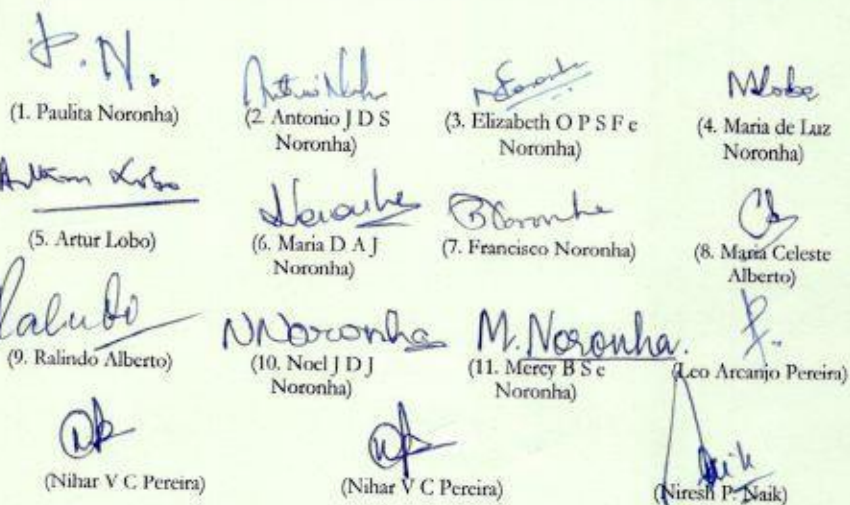 P. N.
(1. Paulita Noronha)
(2. Antonio J D S
Noronha)
(3. Elizabeth O P S F e
Noronha)
MLobo
(4. Maria de Luz
Noronha)
Lobo
(5. Artur Lobo)
Noronha
(6. Maria D A J
Noronha)
Noronha
(7. Francisco Noronha)
(8. Maria Celeste
Alberto)
(9. Ralindo Alberto)
NNoronha
(10. Noel J D J
Noronha)
M. Noronha.
(11. Mercy B S e
Noronha)
(Leo Arcanjo Pereira)
(Nihar V C Pereira)
(Nihar V C Pereira)
Naik
(Niresh P. Naik)